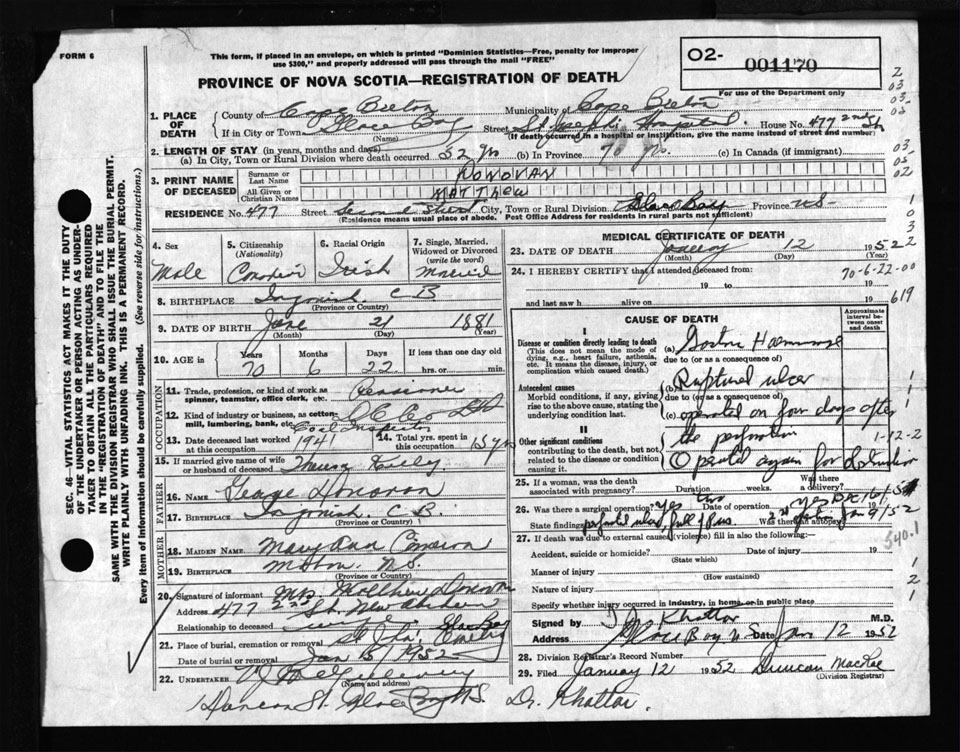 FORM 6
This form, if placed in an envelope, on which is printed "Dominion Statistics—Free, penalty for improper
use $300," and properly addressed will pass through the mail "FREE"
PROVINCE OF NOVA SCOTIA—REGISTRATION OF DEATH
O2- 001170
For use of the Department only
1. PLACE OF DEATH
County of Cape Breton Municipality of Cape Breton
If in City or Town Glace Bay Street St Joseph's Hospital House No. 477 2nd St
(Name) (If death occurred in a hospital or institution, give the name instead of street and number)
2. LENGTH OF STAY (in years, months and days)
(a) In City, Town or Rural Division where death occurred 52 yrs (b) In Province 70 yrs. (c) In Canada (if immigrant)
3. PRINT NAME OF DECEASED
Surname or Last Name DONOVAN
All Given or Christian Names MATTHEW
RESIDENCE No. 477 Street Second Street City, Town or Rural Division Glace Bay Province NS
(Residence means usual place of abode. Post Office Address for residents in rural parts not sufficient)
4. Sex Male
5. Citizenship (Nationality)
6. Racial Origin Irish
7. Single, Married, Widowed or Divorced (write the word) Married
8. BIRTHPLACE Ingonish C B
(Province or Country)
9. DATE OF BIRTH June 21 1881
(Month) (Day) (Year)
10. AGE in Years Months Days If less than one day old
70 6 22 hrs. or min.
OCCUPATION
11. Trade, profession, or kind of work as spinner, teamster, office clerk, etc. Pensioner
12. Kind of industry or business, as cotton-mill, lumbering, bank, etc. Coal Inspector
13. Date deceased last worked at this occupation 1941
14. Total yrs. spent in this occupation 15 yrs
15. If married give name of wife or husband of deceased
FATHER
16. NAME George Donovan
17. BIRTHPLACE Ingonish C.B.
(Province or Country)
MOTHER
18. MAIDEN NAME Mary Ann
19. BIRTHPLACE N.S.
(Province or Country)
20. Signature of informant Mrs. Matthew Donovan
Address 477 2nd St. New Aberdeen
Relationship to deceased Glace Bay
21. Place of burial, cremation or removal
Date of burial or removal Jan 15/1952
22. UNDERTAKER
(Name and address)
St. Glace Bay N.S.
MEDICAL CERTIFICATE OF DEATH
23. DATE OF DEATH January 12 1952
(Month) (Day) (Year)
24. I HEREBY CERTIFY that I attended deceased from
70-6-22-00
19 to 19
and last saw h alive on 19
619
CAUSE OF DEATH
Approximate interval between onset and death
I
Disease or condition directly leading to death
(This does not mean the mode of dying, e.g., heart failure, asthenia, etc. It means the disease, injury, or complication which caused death.)
(a)
due to (or as a consequence of)
Antecedent causes
Morbid conditions, if any, giving rise to the above cause, stating the underlying condition last.
(b) Ruptured ulcer
due to (or as a consequence of)
(c) operated on four days after
II
Other significant conditions
contributing to the death, but not related to the disease or condition causing it.
the perforation
1-12-2
again for
25. If a woman, was the death associated with pregnancy? Duration weeks. Was there a delivery?
26. Was there a surgical operation? Yes two Date of operation
State findings perforated ulcer, full of Pus Was there an autopsy? Jan 9/52
27. If death was due to external causes (violence) fill in also the following:—
540.1
Accident, suicide or homicide? Date of injury 19
(State which)
Manner of injury
(How sustained)
Nature of injury
Specify whether injury occurred in industry, in home or in public place
Signed by Khattar M.D.
Address Glace Bay N S Date Jan 12 1952
28. Division Registrar's Record Number
29. Filed January 12 1952 Duncan MacRae
(Division Registrar)
Dr. Khattar.
SEC. 46—VITAL STATISTICS ACT MAKES IT THE DUTY
OF THE UNDERTAKER OR PERSON ACTING AS UNDER-
TAKER TO OBTAIN ALL THE PARTICULARS REQUIRED
IN THE "REGISTRATION OF DEATH" AND TO FILE THE
SAME WITH THE DIVISION REGISTRAR WHO SHALL ISSUE THE BURIAL PERMIT.
WRITE PLAINLY WITH UNFADING INK. THIS IS A PERMANENT RECORD.
Every item of information should be carefully supplied. (See reverse side for instructions.)